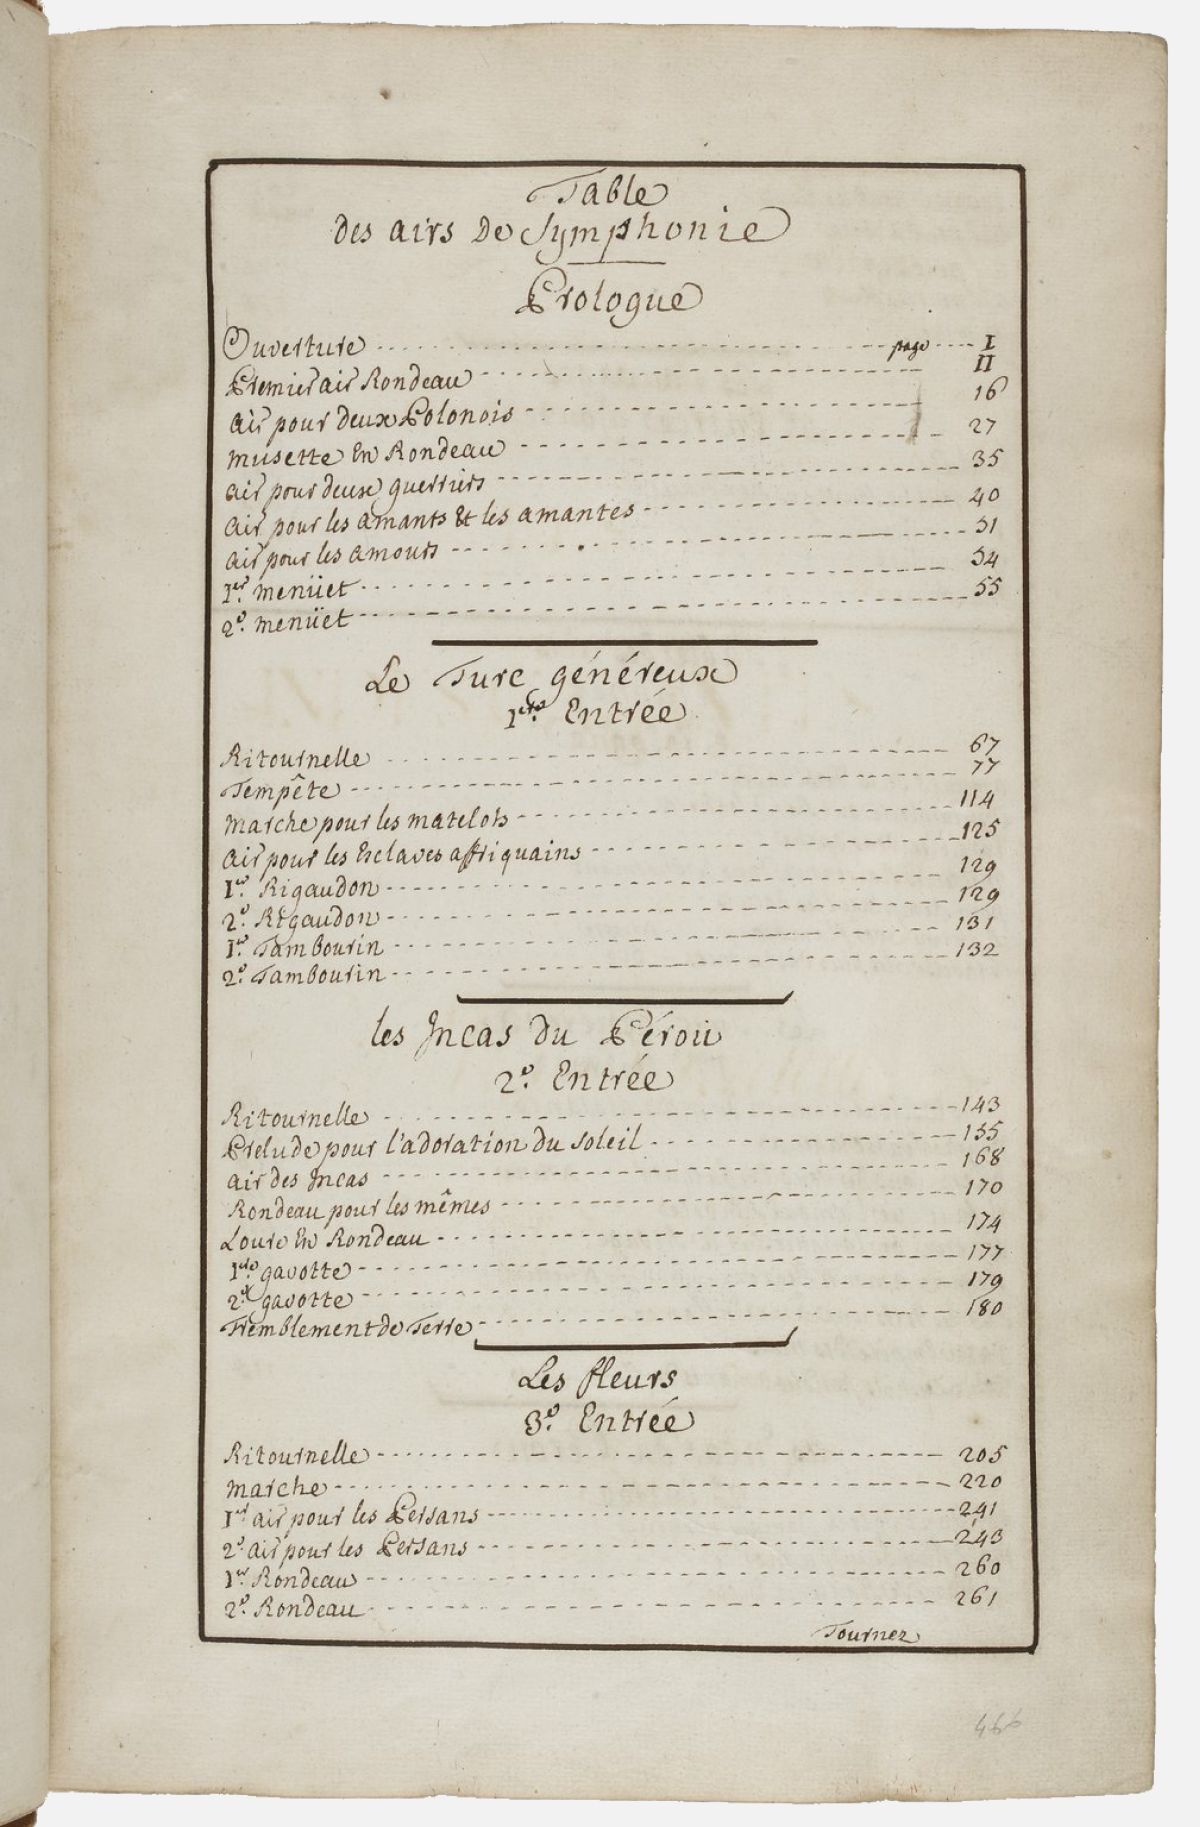 Table
des airs De Symphonie
Prologue
Ouverture page I
Premier air Rondeau II
air pour deux Polonois 16
musette En Rondeau 27
air pour deux guerriers 35
air pour les amants Et les amantes 40
air pour les amours 51
1er. menüet 54
2e. menüet 55
Le Turc généreux
1ere. Entrée
Ritournelle 67
Tempête 77
marche pour les matelots 114
air pour les Esclaves affriquains 125
1er. Rigaudon 129
2e. Rigaudon 129
1er. Tambourin 131
2e. Tambourin 132
les Incas du Pérou
2e. Entrée
Ritournelle 143
Prelude pour l'adoration du soleil 155
air des Incas 168
Rondeau pour les mêmes 170
Loure En Rondeau 174
1ere. gavotte 177
2e. gavotte 179
Tremblement de Terre 180
Les fleurs
3e. Entrée
Ritournelle 205
marche 220
1er air pour les Persans 241
2e. air pour les Persans 243
1er. Rondeau 260
2e. Rondeau 261
Tournez
466